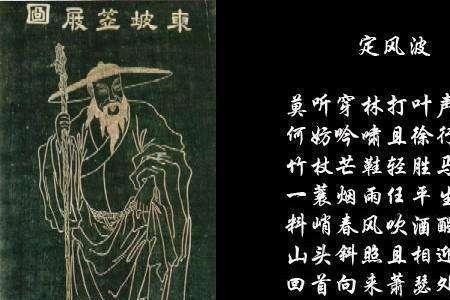 東坡笠屐圖
定风波
莫听穿林打叶声
何妨吟啸且徐行
竹杖芒鞋轻胜马
一蓑烟雨任平生
料峭春风吹酒醒
山头斜照且相迎
回首向来萧瑟处